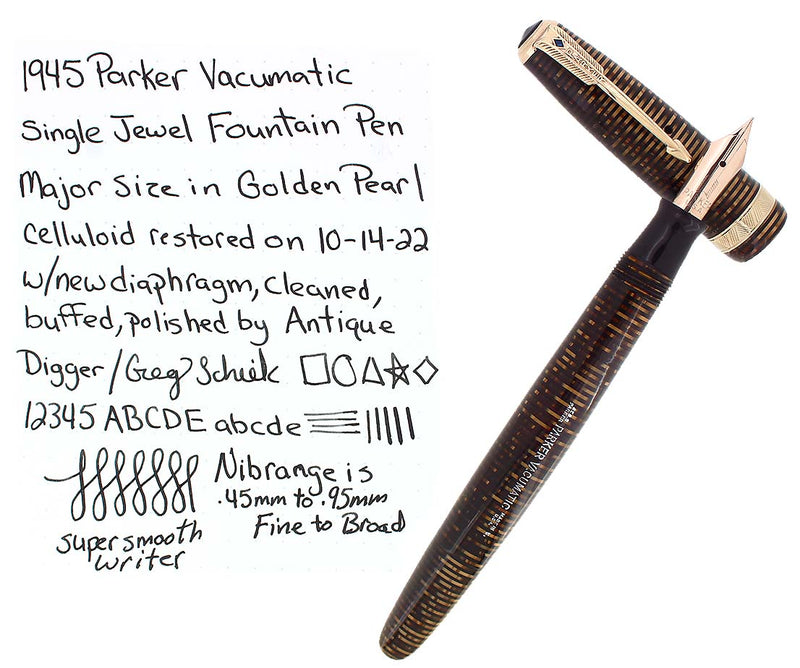 1945 Parker Vacumatic
Single Jewel Fountain Pen
Major Size in Golden Pearl
celluloid restored on 10-14-22
w/new diaphragm, cleaned,
buffed, polished by Antique
Digger/Greg
12345 ABCDE abcde
Nib range is
.45mm to .95mm
Fine to Broad
super smooth
writer
PARKER VACUMATIC
MADE IN U.S.A.